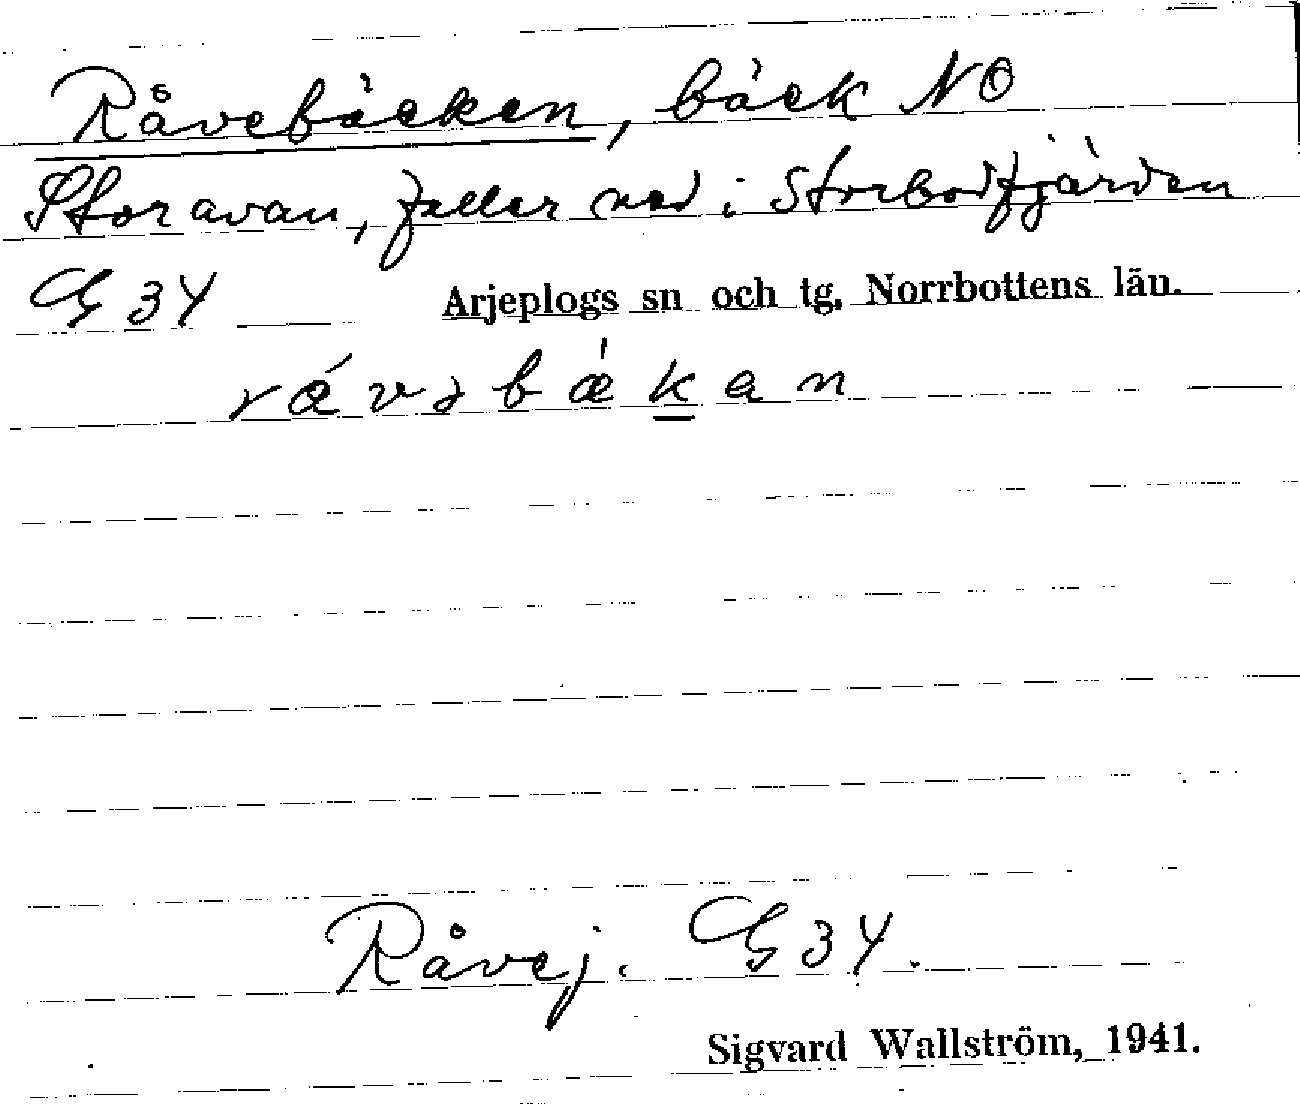 Råvebäcken, bäck NO
Storavan, faller ned i Storbodfjärden
G 34 Arjeplogs sn och tg, Norrbottens län.
Råvej. G 34.
Sigvard Wallström, 1941.